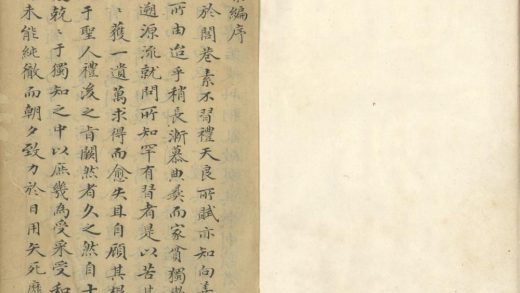 編序
於閭巷素不習禮天良所賦亦知向善
所由迨乎稍長漸慕典彝而家貧獨學
遡源流就問所知罕有習者是以苦其
獲一遺萬求得而愈失且自顧其根
于聖人禮後之旨闕然者久之然自十
乾〻于獨知之中以庶幾為受采受和
未能純徹而朝夕致力於日用矢死靡